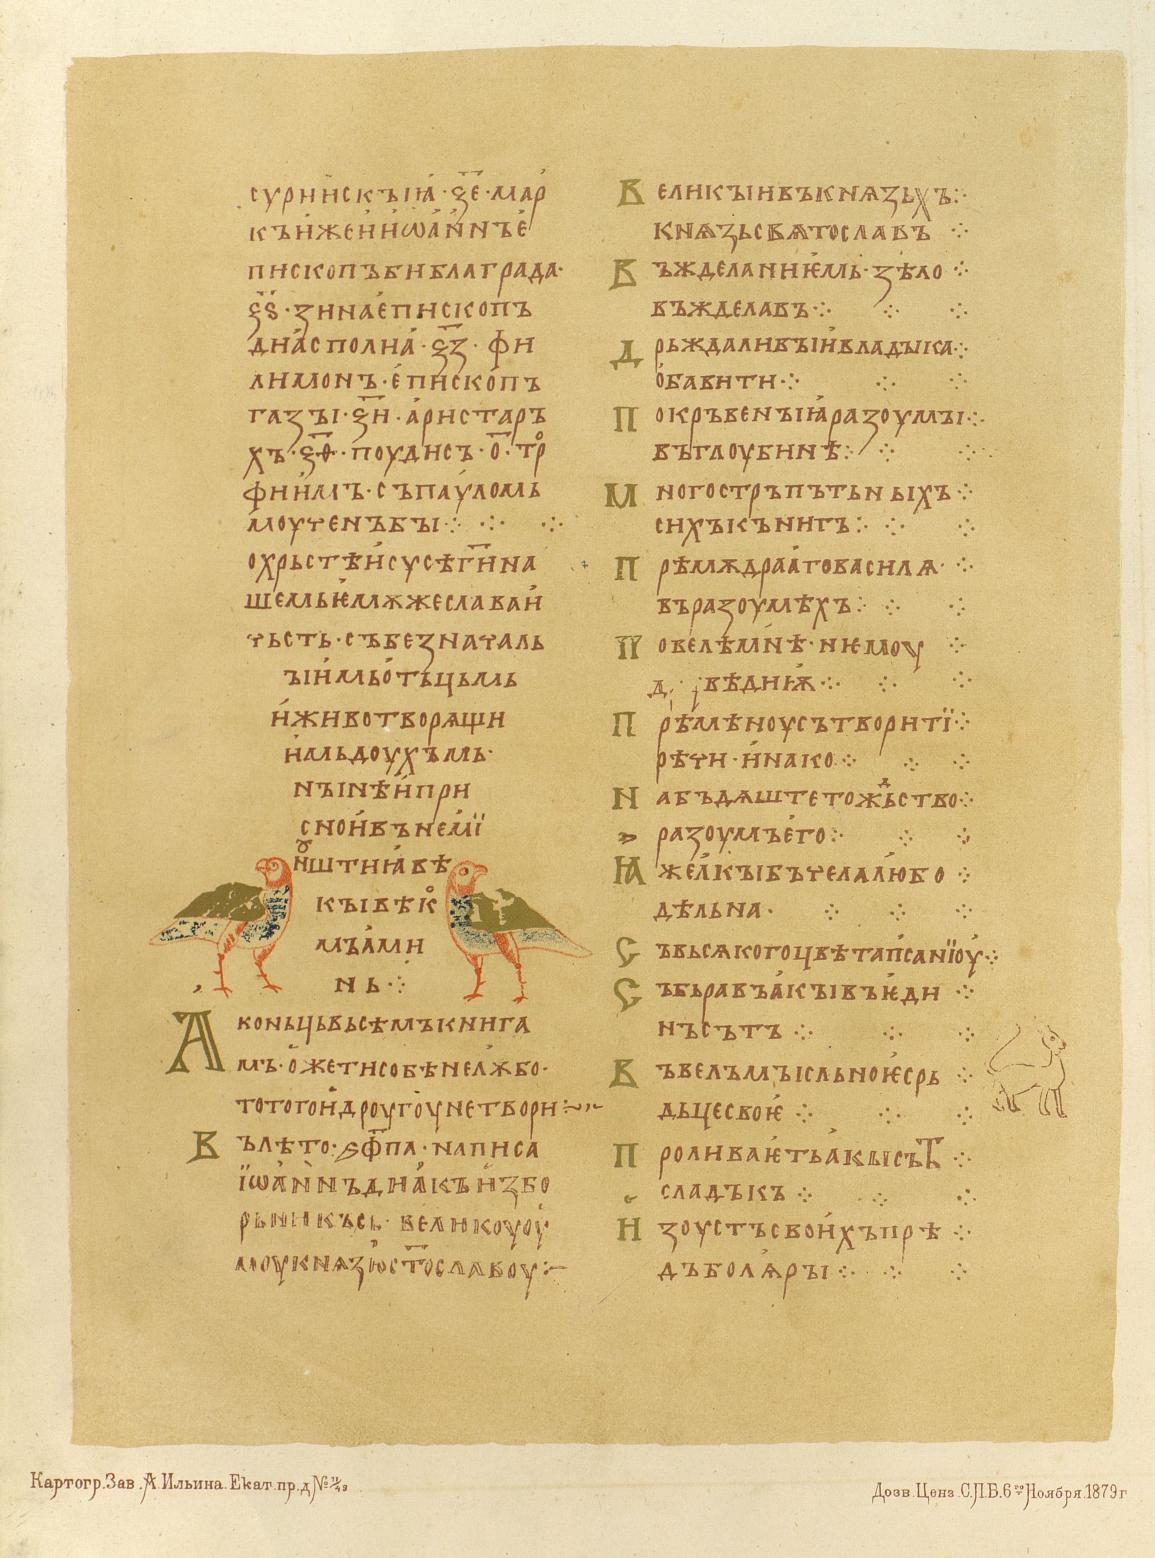 сурнискъіꙗ · ѯ҃е · мар
къ иже и иѡаннъ е
пископъ библаграда ·
ѯ҃ѕ · зина епископъ
диаспониꙗ · ѯ҃з · фи
лимонъ · епископъ
газъі · ѯ҃и · аристар
хъ · ѯ҃ѳ · поудисъ · о҃ · тро
фиимъ · съ паѵломь
моученъ бъі ·:·
о хрьстѣ исусѣ ги҃ на
шемь ѥмѫже слава и
чьсть · съ безначаль
ъіимь отьцьмь
и животворѧщи
имь доухъмь ·
нъінѣ и при
сно и въ немі
ѹштиꙗ вѣ
къі вѣко
мъ ами
нь ·:·
А коньць вьсѣмъ книга
мъ · оже ти собѣ не любо ·
то того и дроугоу не твори ·:~
Въ лѣто · ҂ѕ҃ф҃п҃а · написа
їѡаннъ диꙗкъ изборь
рьникъ сь · великоуоу
моу кнѧзю ст҃ославоу ·:~
Великъіи въ кнѧзьхъ ·:·
кнѧзь свѧтославъ ·:·
Въжделаниѥмь · зѣло ·:·
въжделавъ ·:·
Дрьжаливъіи владъіка ·:·
обавити ·:·
Покръвенъіꙗ разоумъі ·:·
въ глоубинѣ ·:·
Многостръпътьныхъ ·:·
сихъ кънигъ ·:·
Прѣмѫдрааго василꙗ ·:·
въ разоумѣхъ ·:·
Повелѣ мьнѣ · немоу
дровѣдиѭ ·:·
Прѣмѣноу сътворити ·:·
рѣчи · инако ·:·
Набъдѧште тожьдьство ·:·
разоумъ его ·:·
Ꙗже акъі бъчела любо ·:·
дѣльна · ·:·
Съ вьсꙗкого цвѣта псанїоу ·:·
Събьравъ акъі въ ѥди
нъ сътъ ·:·
Въ велъмъісльноѥ срь ·:·
дьце своѥ ·:·
Проливаѥть акы сътъ ·:·
сладъкъ ·:·
Изоустъ своихъ прѣ ·:·
дъ болѧръі ·:·
Картогр. Зав. А. Ильина. Екат. пр. д №
Дозв. Ценз. С.П.Б. 6го Ноября. 1879 г